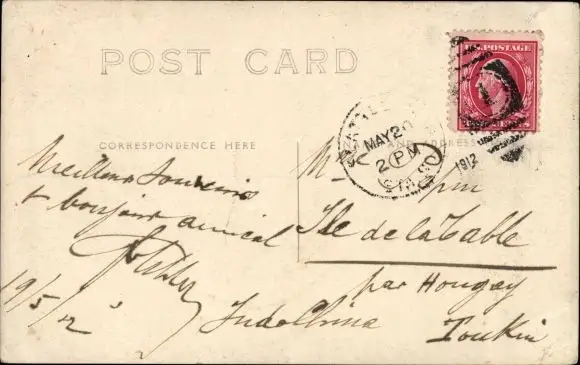 POST CARD
U.S. POSTAGE
MAY 20
2 PM
1912
CORRESPONDENCE HERE
AND ADDRESS
Meilleurs Souvenirs
& bonjour amical
19/5/12
M
Ile de la Table
par Hongay
Indo China Tonkin